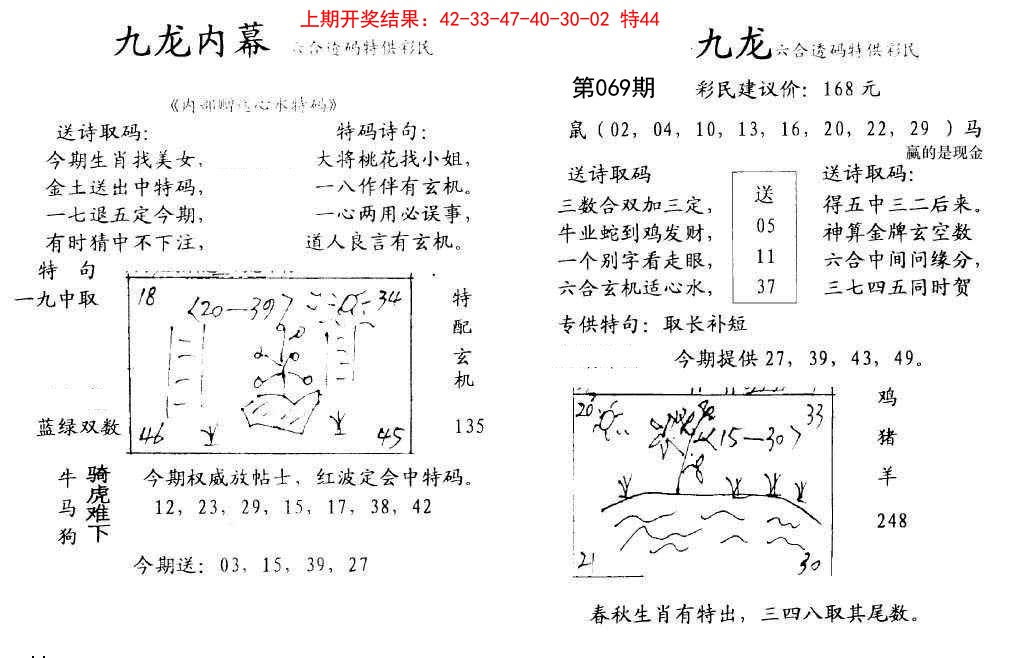 上期开奖结果：42-33-47-40-30-02 特44
九龙内幕 六合透码特供彩民
送诗取码：
今期生肖找美女，
金土送出中特码，
一七退五定今期，
有时猜中不下注，
特码诗句：
大将桃花找小姐，
一八作伴有玄机。
一心两用必误事，
道人良言有玄机。
特 句
一九中取
蓝绿双数
18
〈20—39〉
34
46
45
特
配
玄
机
135
牛
马
狗
骑
虎
难
下
今期权威放帖士，红波定会中特码。
12，23，29，15，17，38，42
今期送：03，15，39，27
九龙六合透码特供彩民
第069期 彩民建议价：168元
鼠（02，04，10，13，16，20，22，29 ）马
赢的是现金
送诗取码
三数合双加三定，
牛业蛇到鸡发财，
一个别字看走眼，
六合玄机适心水，
送
05
11
37
送诗取码：
得五中三二后来。
神算金牌玄空数
六合中间问缘分，
三七四五同时贺
专供特句：取长补短
今期提供27，39，43，49。
20
33
〈15—30〉
21
30
鸡
猪
羊
248
春秋生肖有特出，三四八取其尾数。